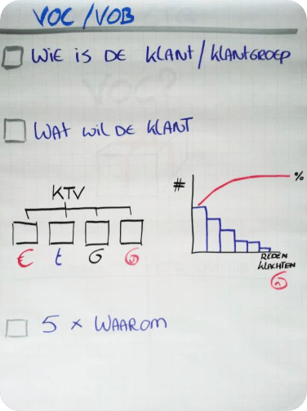 VOC/VOB
WIE IS DE KLANT/KLANTGROEP
WAT WIL DE KLANT
KTV
€ t G
# %
REDEN
KLACHTEN
5 x WAAROM